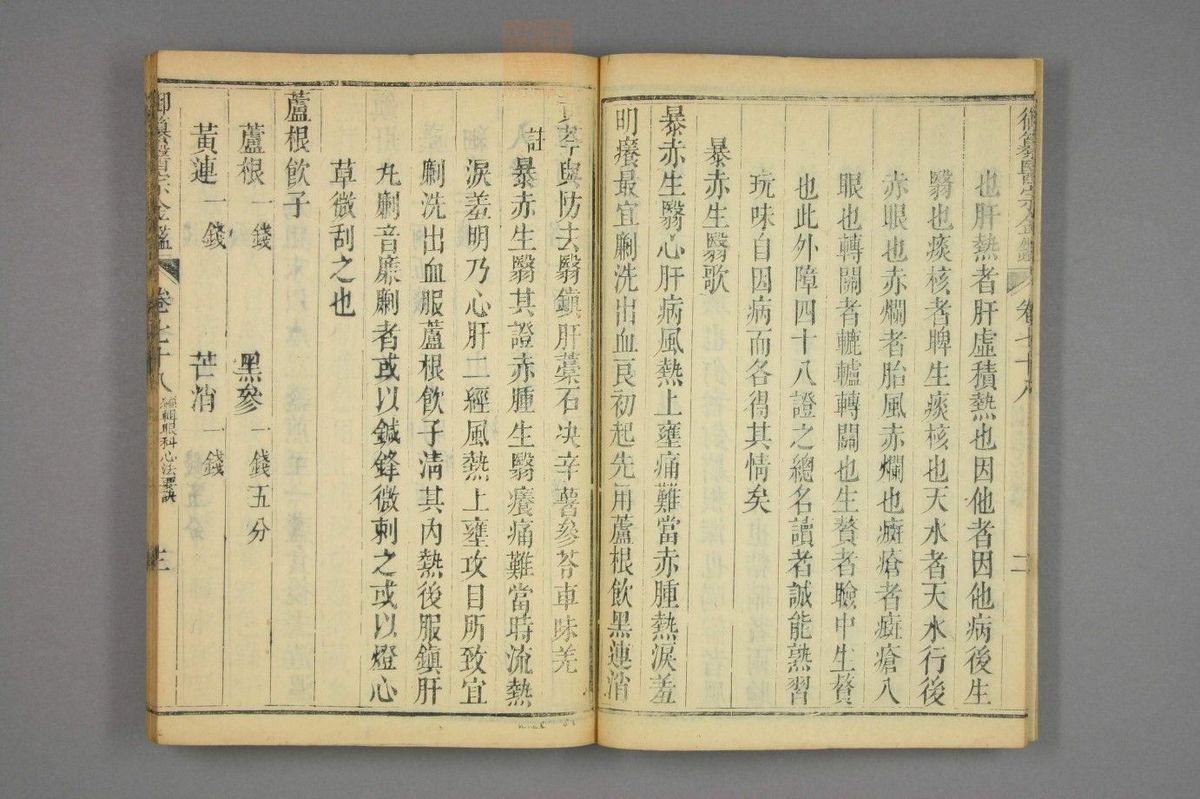 御纂醫宗金鑑 卷七十八 二
也肝熱者肝虛積熱也因他者因他病後生
翳也痰核者脾生痰核也天水者天水行後
赤眼也赤爛者胎風赤爛也癍瘡者癍瘡入
眼也轉關者轆轤轉關也生贅者瞼中生贅
也此外障四十八證之總名讀者誠能熟習
玩味自因病而各得其情矣
暴赤生翳歌
暴赤生翳心肝病風熱上壅痛難當赤腫熱淚羞
明癢最宜劆洗出血良初起先用蘆根飲黑連消
黃芩與防大翳鎮肝藁石决辛薯參苓車味羌
註
暴赤生翳其證赤腫生翳癢痛難當時流熱
淚羞明乃心肝二經風熱上壅攻目所致宜
劆洗出血服蘆根飲子清其內熱後服鎮肝
丸劆音廉劆者或以鍼鋒微刺之或以燈心
草微刮之也
蘆根飲子
蘆根一錢 黑參一錢五分
黃連一錢 芒消一錢
御纂醫宗金鑑 卷七十八 編輯眼科心法要訣 三